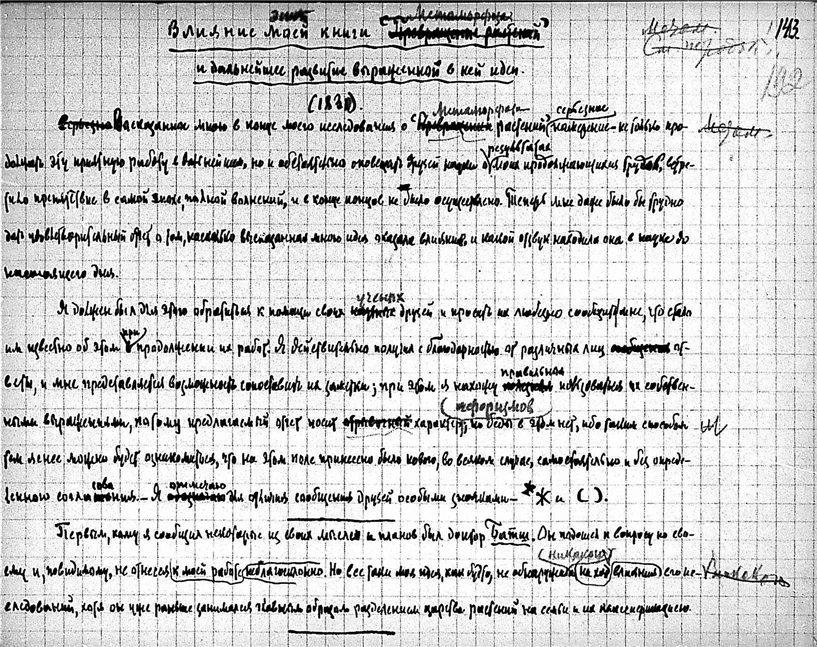 143
Влияние моей книги "Метаморфоза растений"
192
и дальнейшее развитие выраженной в ней идеи.
(1830).
Высказанное мною в конце моего исследования о "Метаморфозе растений" серьезное намерение не только про-
должать эту приятную работу в дальнейшем, но и обстоятельно оповещать друзей науки о результатах моих продолжающихся трудов, встре-
тило препятствие в самой эпохе, полной волнений, и в конце концов не было осуществлено. Теперь мне даже было бы трудно
дать удовлетворительный отчет о том, насколько высказанная мною идея оказала влияние и какой отзвук находила она в науке до
настоящего дня.
Я должен был для этого обратиться к помощи своих ученых друзей и просить их любезно сообщить мне, что стало
им известно об этом при продолжении их работ. Я действительно получил с благодарностью от различных лиц от-
веты, и мне представляется возможность сопоставить их заметки; при этом я нахожу правильным пользоваться их собствен-
ными выражениями, потому предлагаемый отчет носит характер афоризмов, но беды в этом нет, ибо таким способом
тем не менее можно будет ознакомиться, что на этом поле принесено было нового, во всяком случае, самостоятельно и без опреде-
ленного согласования. — Я отмечаю для отличия сообщения друзей особыми значками — * * и ( ).
Первым, кому я сообщил некоторые из своих мыслей и планов был доктор Батш. Он подошел к вопросу по сво-
ему и, повидимому, не отнесся к моей работе неблагосклонно. Но все таки моя идея, как будто, не обнаружила никакого влияния на ход его ис-
следований, хотя он уже раньше занимался главным образом разделением царства растений на семьи и их классификацией.